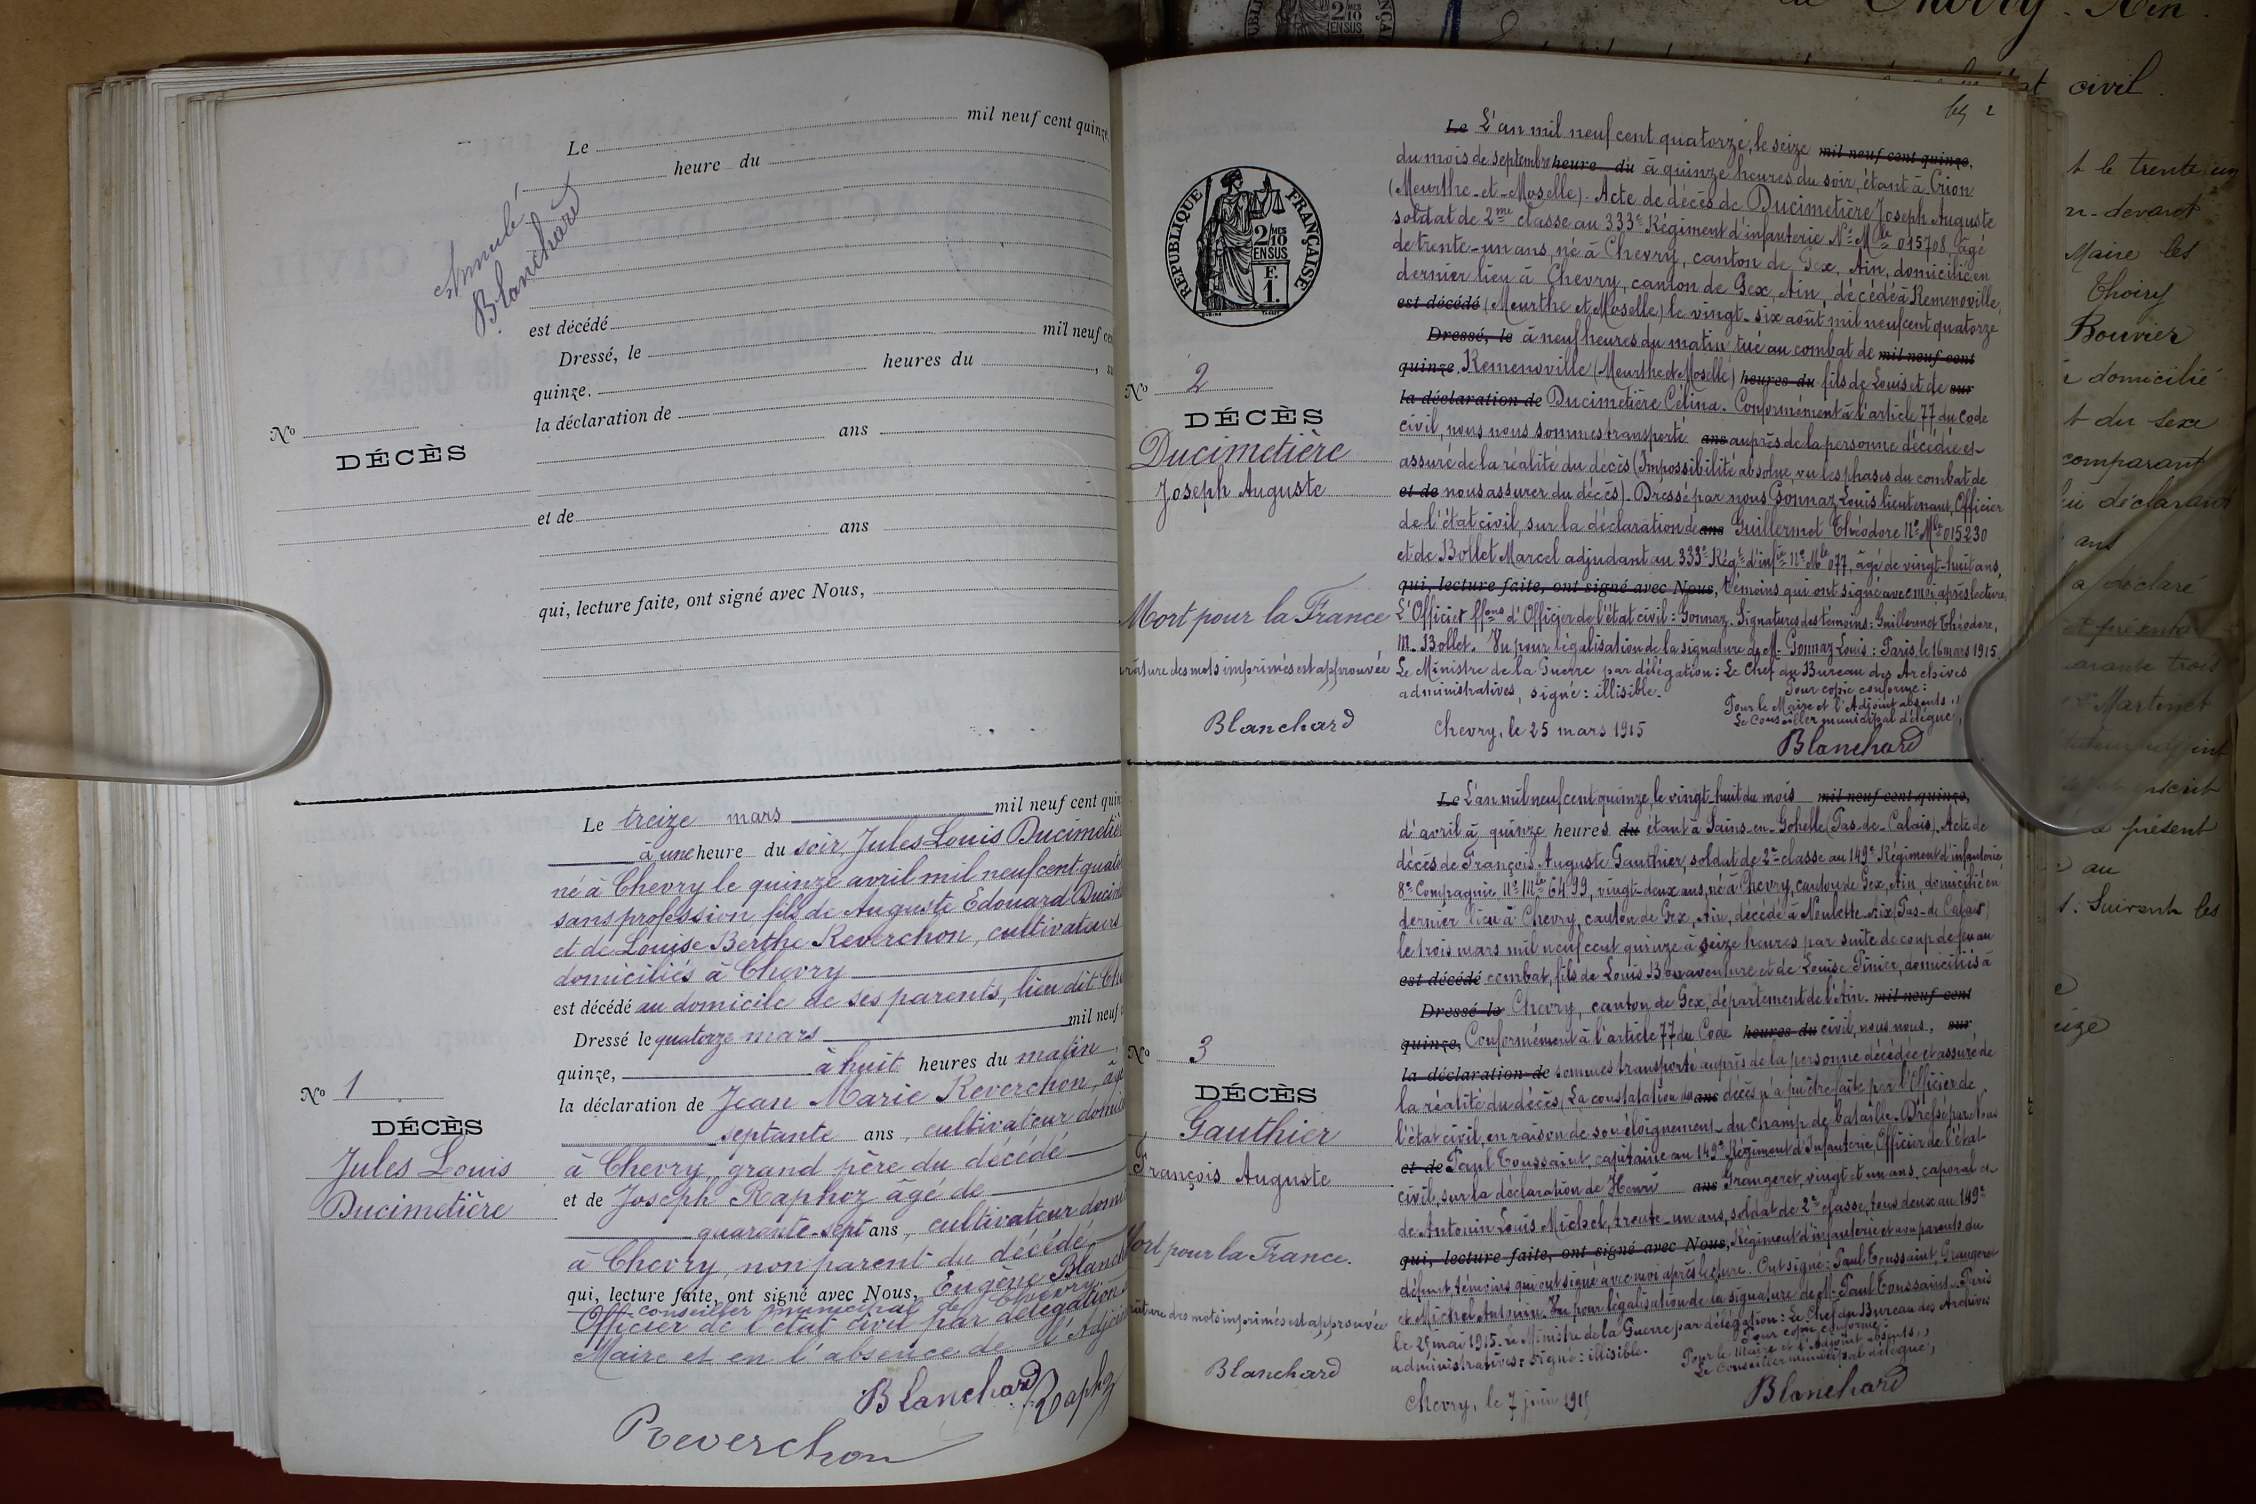 Le mil neuf cent quinze,
heure du
Annulé
Blanchard
est décédé
Dressé, le mil neuf
quinze. heures du
la déclaration de
ans
No
DÉCÈS
et de
ans
qui, lecture faite, ont signé avec Nous,
Le treize mars mil neuf cent
à une heure du soir, Jules Louis
né à Chevry le quinze avril mil neuf cent
sans profession, fils de Auguste Edouard
et de Louise Berthe Reverchon, cultivateurs
domiciliés à Chevry
est décédé au domicile de ses parents, lieu dit
Dressé le quatorze mars mil neuf
quinze, à huit heures du matin
la déclaration de Jean Marie Reverchon,
No 1
septante ans, cultivateur
DÉCÈS
Jules Louis
Ducimetière
à Chevry, grand père du décédé
et de Joseph Raphoz âgé de
quarante-sept ans, cultivateur
à Chevry, non parent du décédé
qui, lecture faite, ont signé avec Nous, Eugène
conseiller municipal de Chevry
Officier de l'état civil par délégation
Maire et en l'absence de
Blanchard
Reverchon
2
RÉPUBLIQUE FRANÇAISE
2/10 MES
EN SUS
F.
1.
Le L'an mil neuf cent quatorze, le seize mil neuf cent quinze,
du mois de septembre heure du à quinze heures du soir, étant à Crion
(Meurthe-et-Moselle). Acte de décès de Ducimetière Joseph Auguste
soldat de 2me classe au 333e Régiment d'infanterie No Mle 015708, âgé
de trente-un ans, né à Chevry, canton de Gex, Ain, domicilié en
dernier lieu à Chevry, canton de Gex, Ain, décédé à Remenoville,
est décédé (Meurthe et Moselle) le vingt-six août mil neuf cent quatorze
Dressé, le à neuf heures du matin tué au combat de mil neuf cent
quinze. Remenoville (Meurthe et Moselle) heures du fils de Louis et de sur
la déclaration de Ducimetière Célina. Conformément à l'article 77 du code
civil, nous nous sommes transporté ans auprès de la personne décédée et
assuré de la réalité du décès (Impossibilité absolue, vu les phases du combat de
et de nous assurer du décès). Dressé par nous Gonnaz Louis lieutenant, Officier
de l'état civil, sur la déclaration de ans Guillermet Théodore No Mle 015230
et de Bollet Marcel adjudant au 333e Régt d'infie No Mle 077, âgé de vingt-huit ans,
qui, lecture faite, ont signé avec Nous, témoins qui ont signé avec moi après lecture,
L'Officier ffons d'Officier de l'état civil: Gonnaz. Signatures des témoins: Guillermet Théodore,
M. Bollet. Vu pour légalisation de la signature de M. Gonnaz Louis: Paris, le 16 mars 1915.
Le Ministre de la Guerre par délégation: Le Chef du Bureau des Archives
administratives, signé: illisible.
Pour copie conforme:
Pour le Maire et l'Adjoint absents,
Le Conseiller municipal délégué,
Chevry, le 25 mars 1915
Blanchard
No 2
DÉCÈS
Ducimetière
Joseph Auguste
Mort pour la France
des mots imprimés est approuvée
Blanchard
Le L'an mil neuf cent quinze, le vingt-huit du mois mil neuf cent quinze,
d'avril à quinze heures du étant à Sains-en-Gohelle (Pas-de-Calais). Acte de
décès de François Auguste Gauthier, soldat de 2e classe au 149e Régiment d'infanterie,
8e Compagnie No Mle 6499, vingt-deux ans, né à Chevry, canton de Gex, Ain, domicilié en
dernier lieu à Chevry, canton de Gex, Ain, décédé à Noulette Aix (Pas-de-Calais)
le trois mars mil neuf cent quinze à seize heures par suite de coup de feu au
est décédé combat, fils de Louis Bonaventure et de Louise Pinier, domiciliés à
Dressé le Chevry, canton de Gex, département de l'Ain. mil neuf cent
quinze, Conformément à l'article 77 du Code heures du civil, nous nous, sur
la déclaration de sommes transporté auprès de la personne décédée et assuré de
la réalité du décès (La constatation du ans décès n'a pu être faite par l'Officier de
l'état civil, en raison de son éloignement du champ de bataille. Dressé par Nous
et de Paul Toussaint, capitaine au 149e Régiment d'Infanterie, Officier de l'état
civil, sur la déclaration de Henri ans Grangeret, vingt et un ans, caporal et
de Antonin Louis Michel, trente-un ans, soldat de 2e classe, tous deux au 149e
qui, lecture faite, ont signé avec Nous, Régiment d'infanterie et non parents du
défunt, témoins qui ont signé avec moi après lecture. Ont signé: Paul Toussaint, Grangeret
et Michel Antonin. Vu, pour légalisation de la signature de M. Paul Toussaint. Paris
le 29 mai 1915. Le Ministre de la Guerre par délégation: Le Chef du Bureau des Archives
administratives: signé: illisible.
Pour copie conforme:
Pour le Maire et l'Adjoint absents,
Le Conseiller municipal délégué,
Chevry, le 7 juin 1915
Blanchard
No 3
DÉCÈS
Gauthier
François Auguste
Mort pour la France.
des mots imprimés est approuvée
Blanchard
civil.
t le trente un
devant
Maire les
Thoiry
Bouvier
domicilié
t du sexe
comparant
déclarant
ans
a déclaré
trois
Martinet
inscrit
présent
au
Suivent les